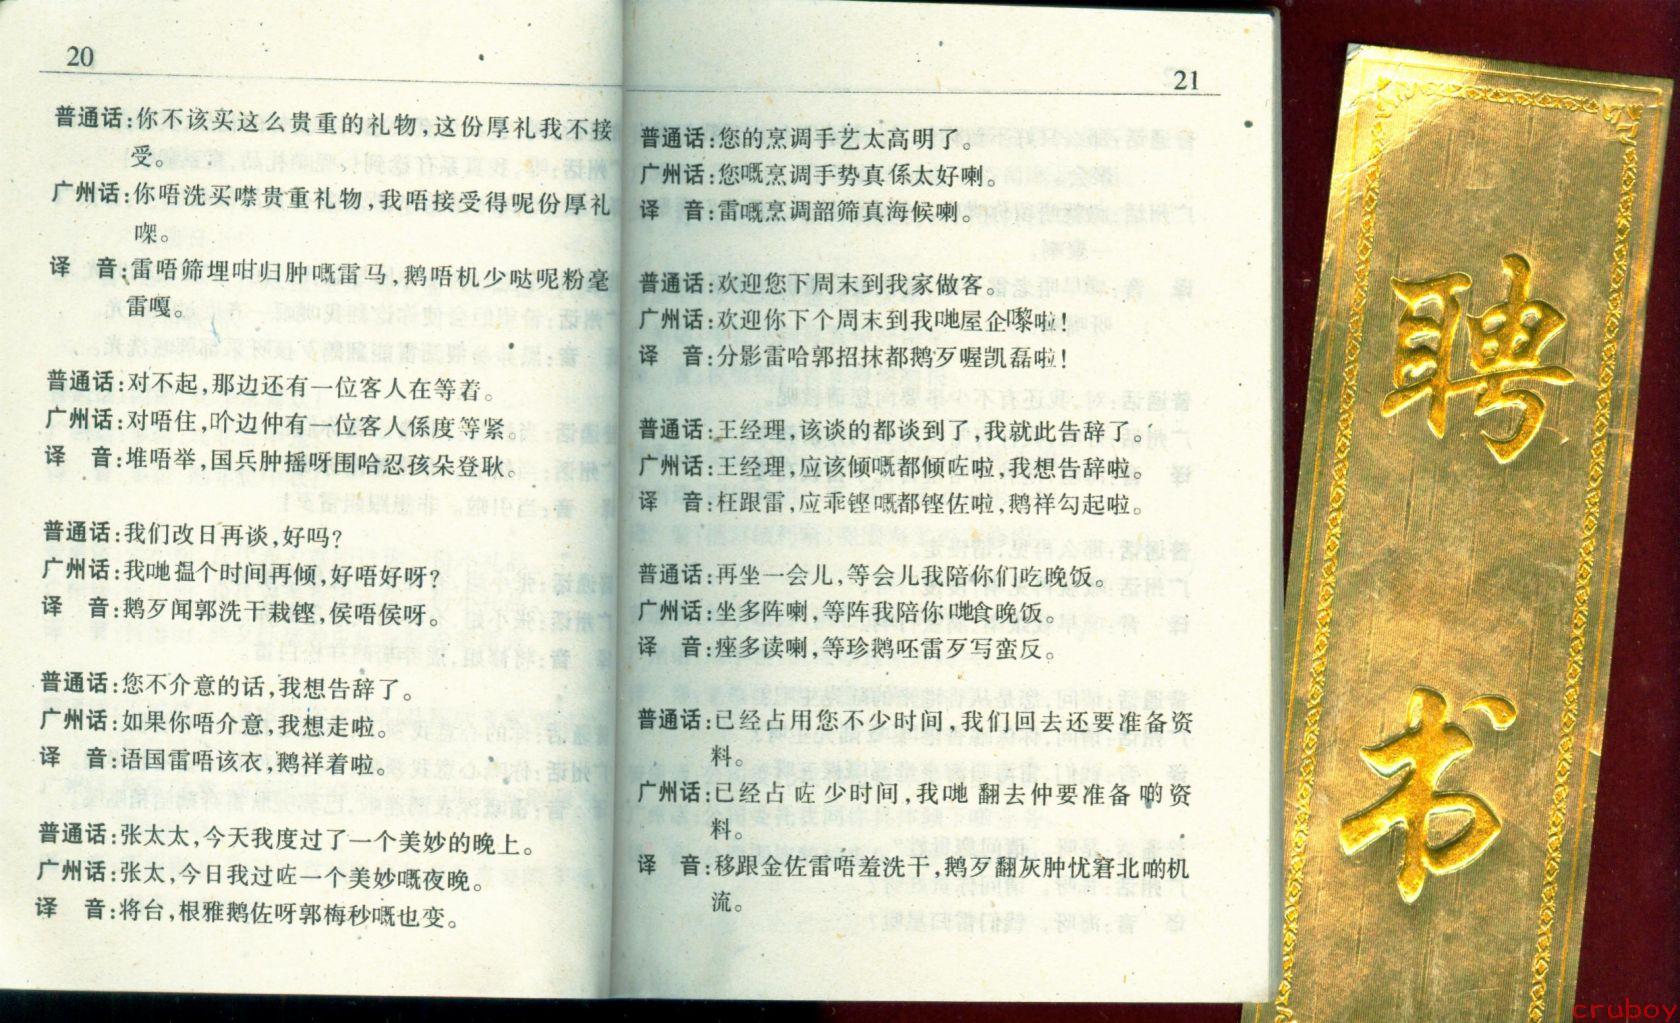 20
普通话:你不该买这么贵重的礼物,这份厚礼我不接
受。
广州话:你唔洗买噤贵重礼物,我唔接受得呢份厚礼
㗎。
译 音:雷唔筛埋咁归肿嘅雷马,鹅唔机少哒呢粉毫
雷嘎。
普通话:对不起,那边还有一位客人在等着。
广州话:对唔住,吤边仲有一位客人係度等紧。
译 音:堆唔举,国兵肿摇呀围哈忍孩朵登耿。
普通话:我们改日再谈,好吗?
广州话:我哋揾个时间再倾,好唔好呀?
译 音:鹅歹闻郭洗干栽铿,侯唔侯呀。
普通话:您不介意的话,我想告辞了。
广州话:如果你唔介意,我想走啦。
译 音:语国雷唔该衣,鹅祥着啦。
普通话:张太太,今天我度过了一个美妙的晚上。
广州话:张太,今日我过咗一个美妙嘅夜晚。
译 音:将台,根雅鹅佐呀郭梅秒嘅也变。
21
普通话:您的烹调手艺太高明了。
广州话:您嘅烹调手势真係太好喇。
译 音:雷嘅烹调韶筛真海候喇。
普通话:欢迎您下周末到我家做客。
广州话:欢迎你下个周末到我哋屋企嚟啦!
译 音:分影雷哈郭招抹都鹅歹喔凯磊啦!
普通话:王经理,该谈的都谈到了,我就此告辞了。
广州话:王经理,应该倾嘅都倾咗啦,我想告辞啦。
译 音:枉跟雷,应乖铿嘅都铿佐啦,鹅祥勾起啦。
普通话:再坐一会儿,等会儿我陪你们吃晚饭。
广州话:坐多阵喇,等阵我陪你哋食晚饭。
译 音:痤多读喇,等珍鹅呸雷歹写蛮反。
普通话:已经占用您不少时间,我们回去还要准备资
料。
广州话:已经占咗少时间,我哋翻去仲要准备啲资
料。
译 音:移跟金佐雷唔羞洗干,鹅歹翻灰肿忧窘北啲机
流。
聘
书
cruboy